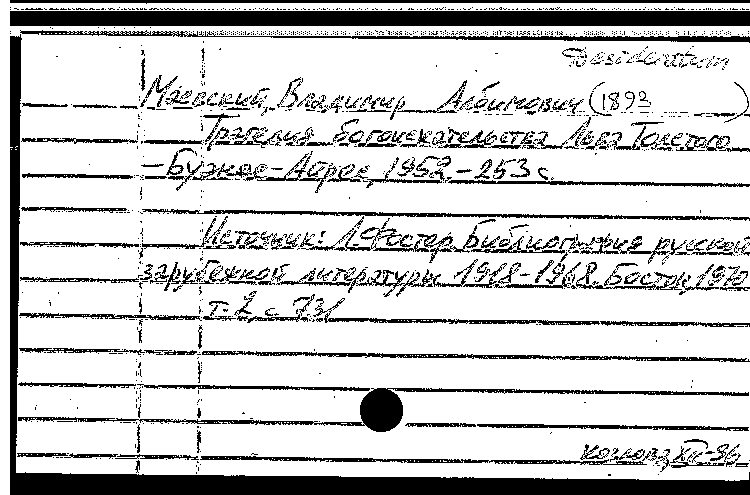 Desideratum
Маевский, Владимир Альбинович (1893 )
Трагедия богоискательства Льва Толстого
-Буэнос-Айрес, 1952 - 253 с.
Источник: Л. Фостер. Библиография русской
зарубежной литературы 1918-1968. Бостон, 1970
т. 2, с 731
козлова, XII-96